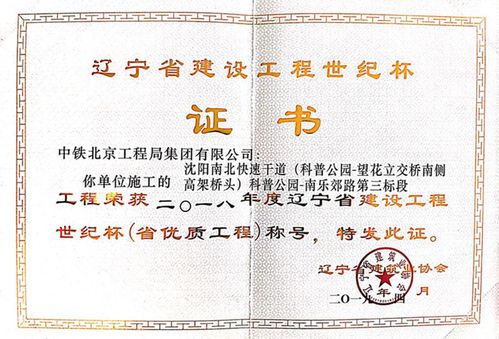 辽宁省建设工程世纪杯
证书
中铁北京工程局集团有限公司：
沈阳南北快速干道（科普公园-望花立交桥南侧
你单位施工的 高架桥头）科普公园-南乐郊路第三标段
工程荣获二〇一八年度辽宁省建设工程
世纪杯(省优质工程)称号，特发此证。
辽宁省建筑业协会
二〇一九年四月